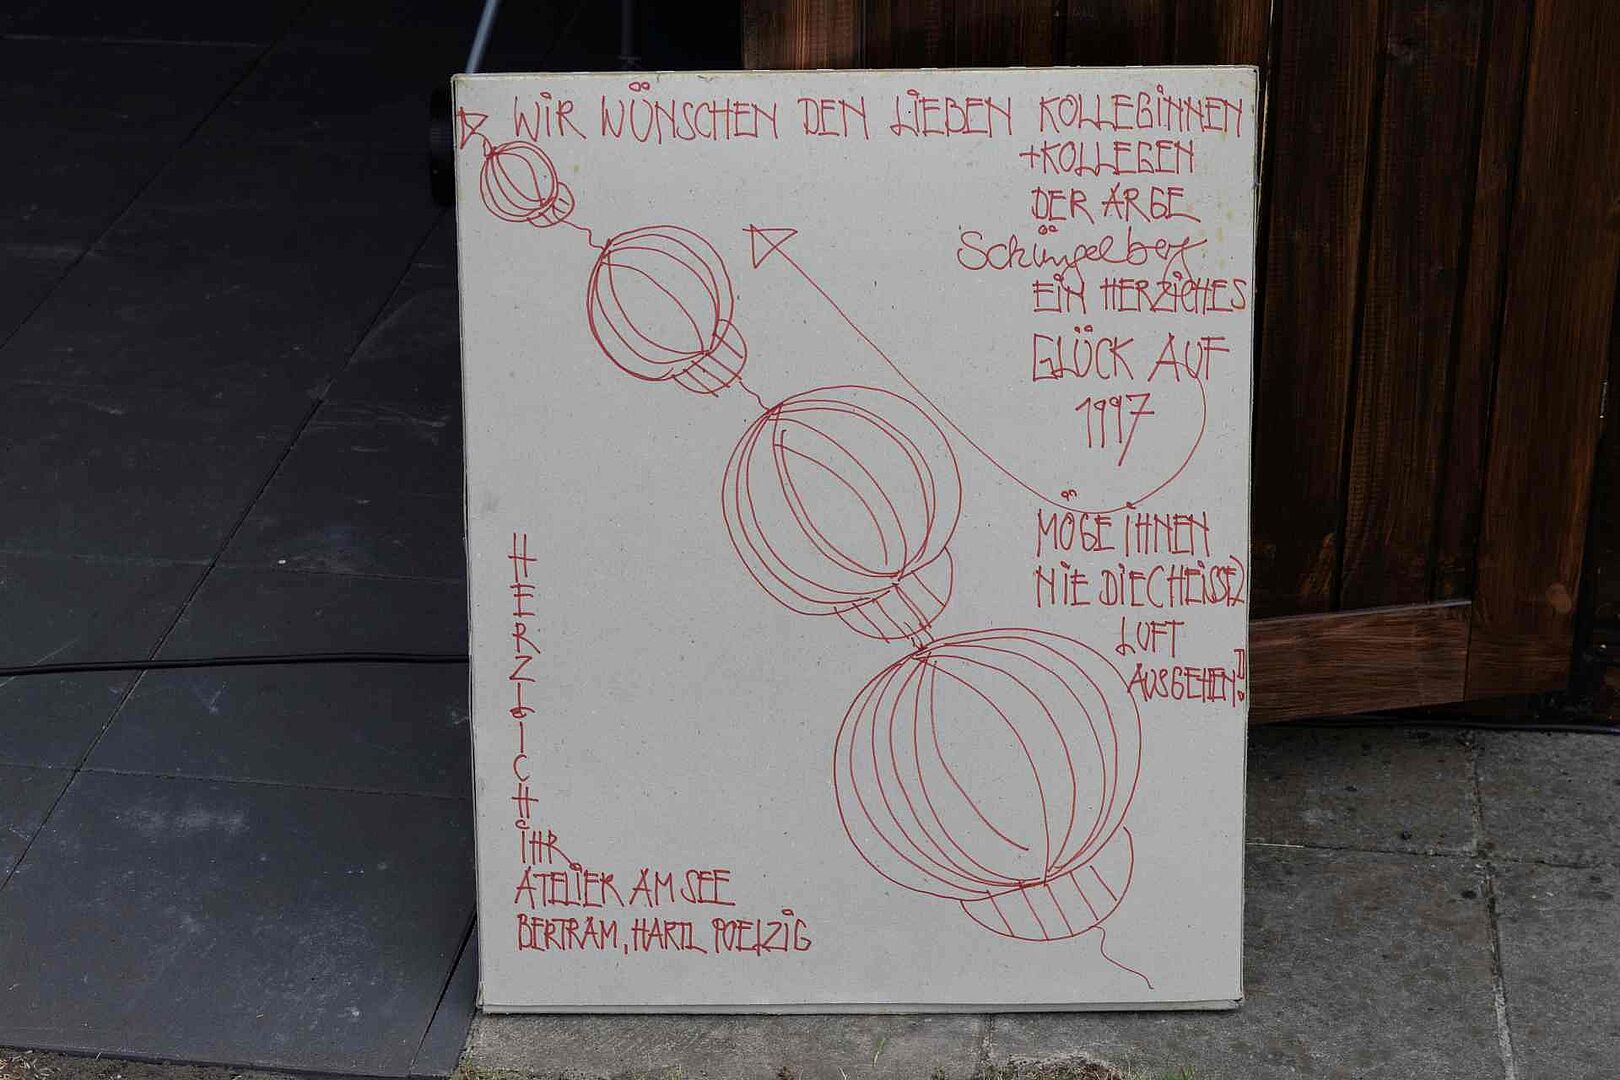 WIR WÜNSCHEN DEN LIEBEN KOLLEGINNEN
+KOLLEGEN
DER ARGE
Schüngelberg
EIN HERZICHES
GLÜCK AUF
1997
MÖGE IHNEN
NIE DIE HEISSE
LUFT
AUSGEHEN!
HERZLICH
IHR
ATELIER AM SEE
BERTRAM, HARTL POELZIG